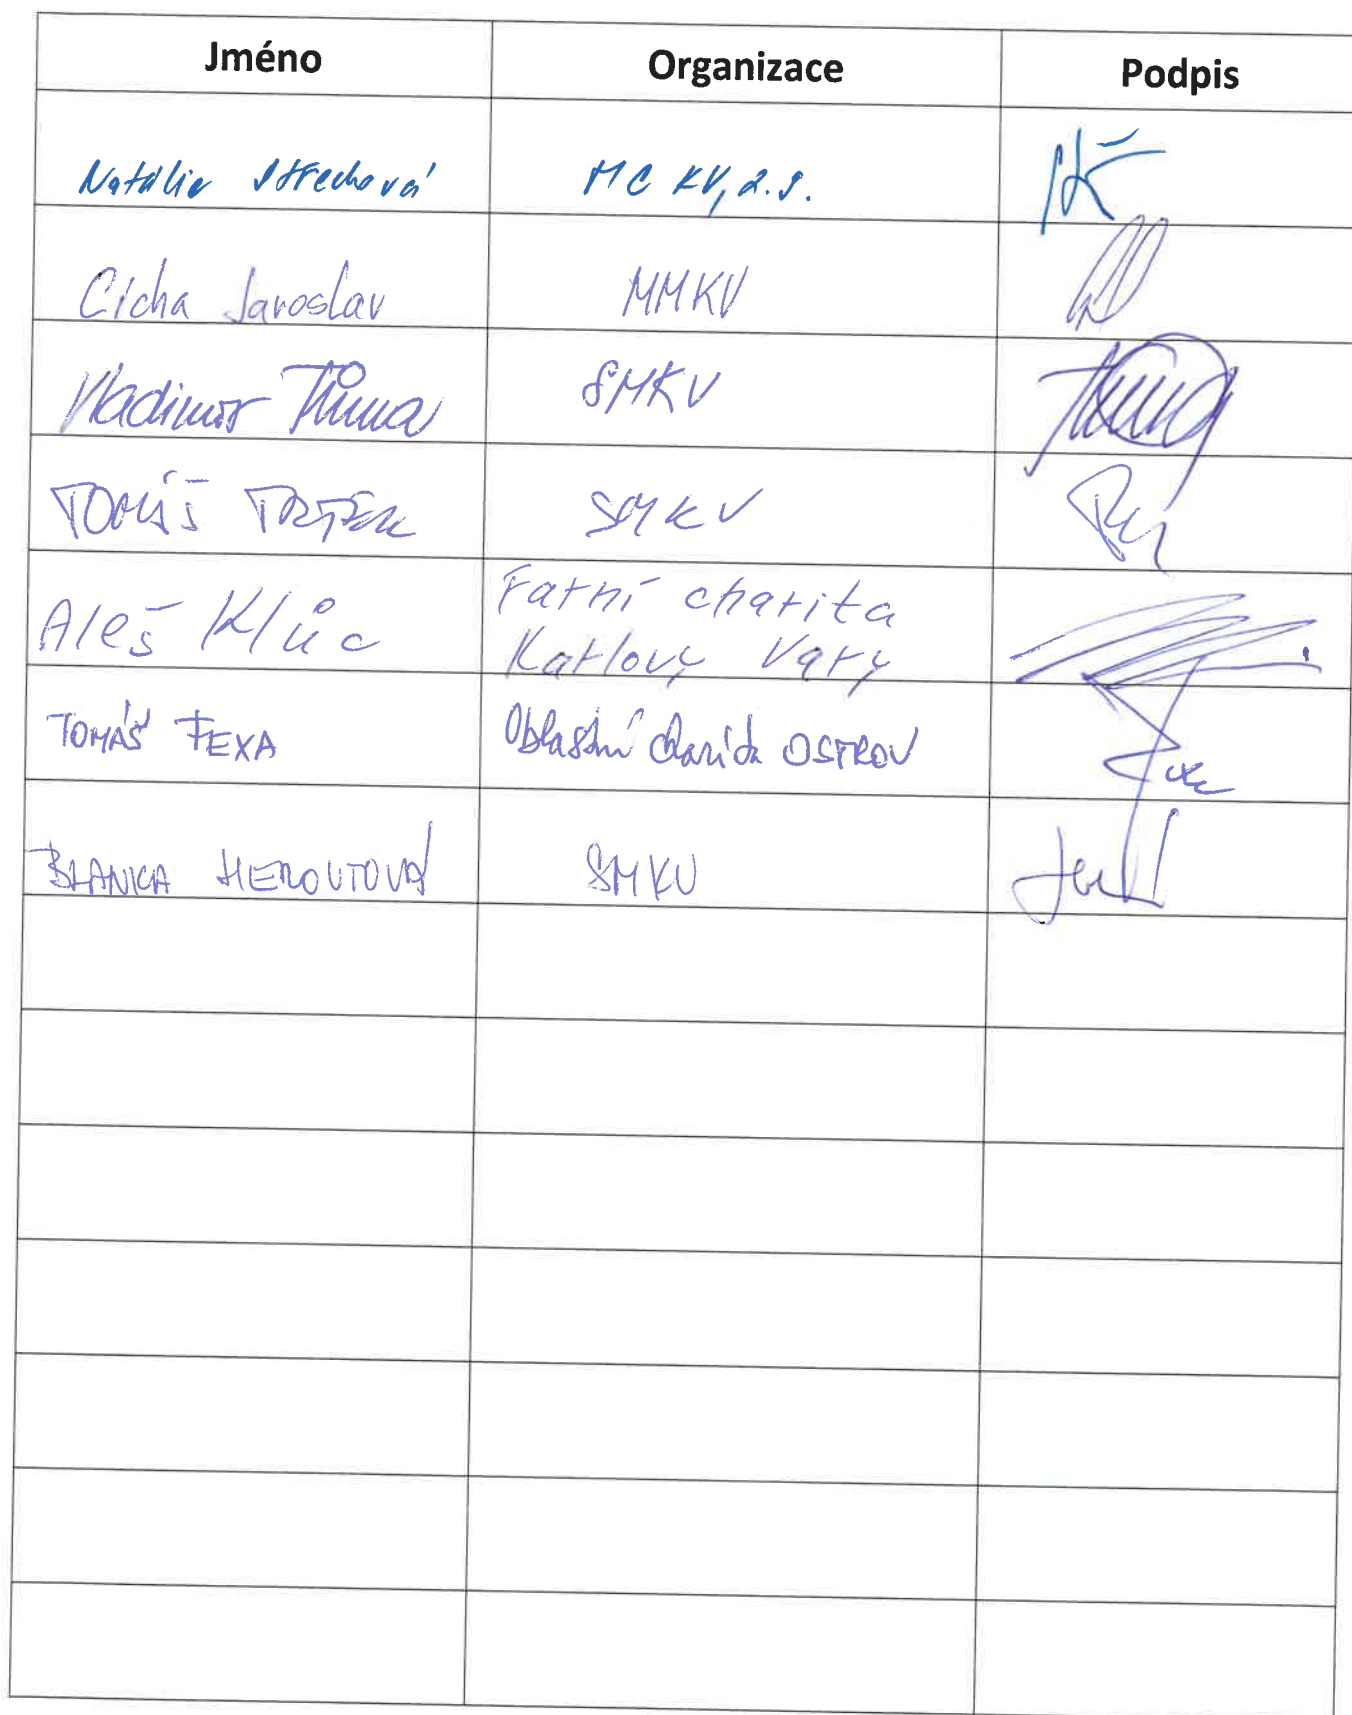 Jméno Organizace Podpis
Natálie Střechová MC KV, z.s.
Cícha Jaroslav MMKV
Vladimír Tůma SMKV
TOMÁŠ SMKV
Aleš Klůc Farní charita
Karlovy Vary
TOMÁŠ FEXA Oblastní charita OSTROV
BLANKA HEROUTOVÁ SMKV